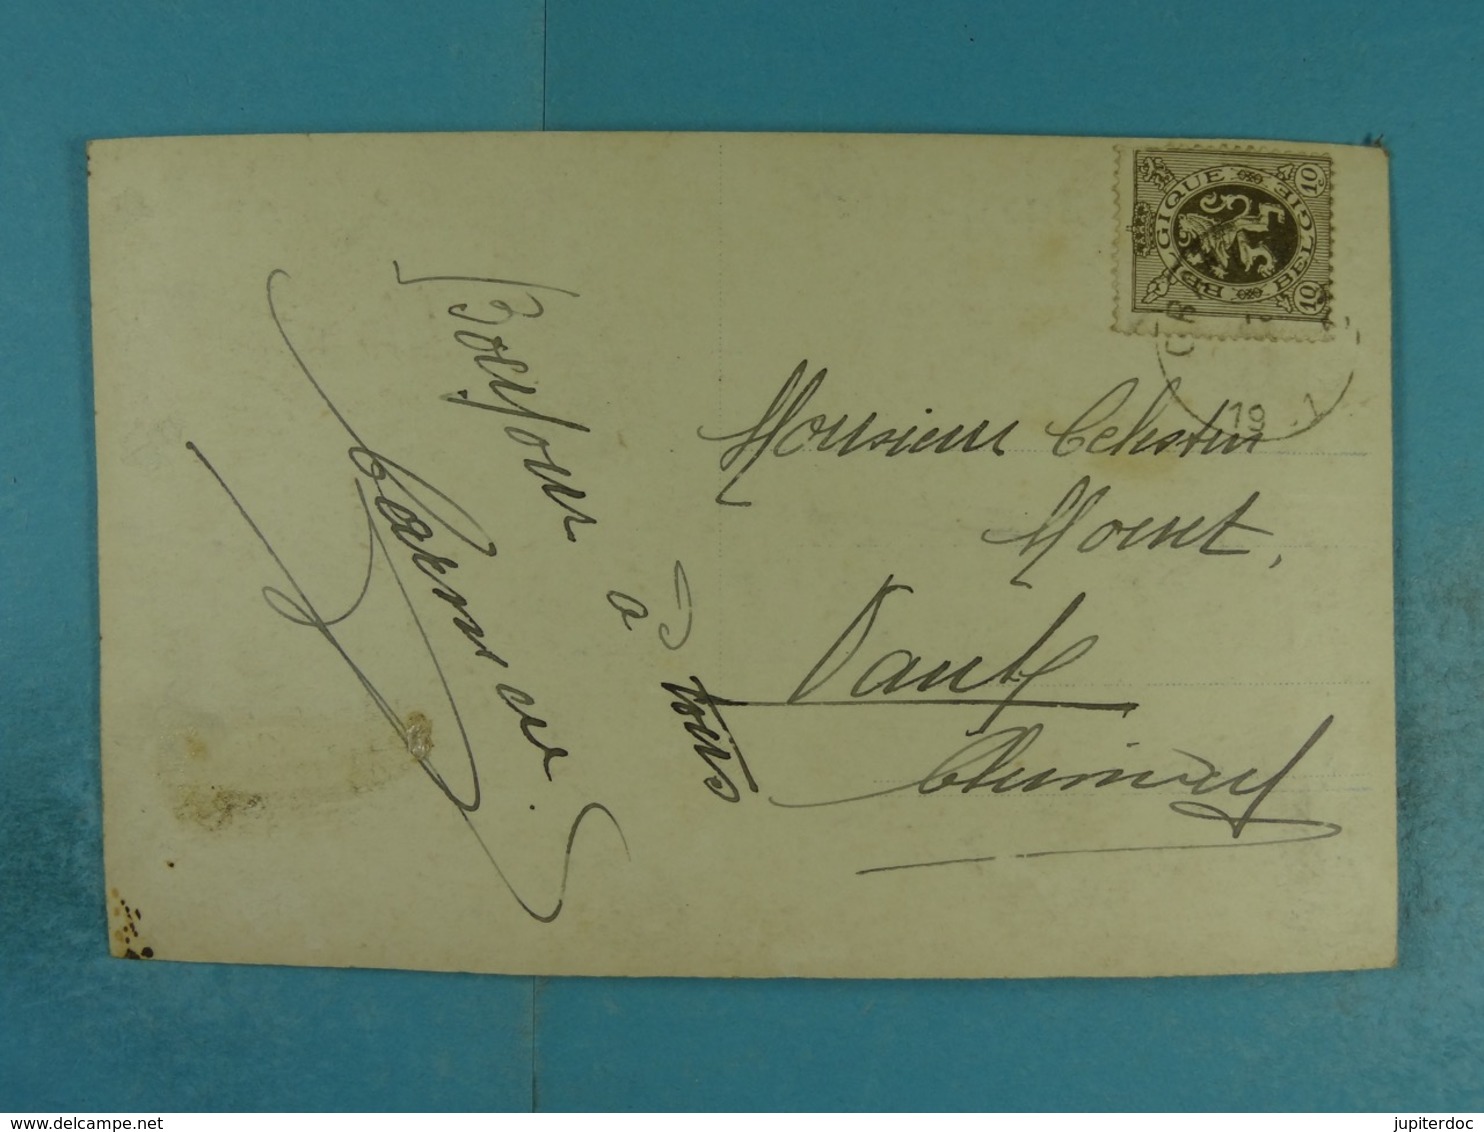 Bonjour
à
tous
BELGIQUE BELGIE
10
10
19
Monsieur Celestin
Mont,
Vaulx
Chimay
© delcampe.net
jupiterdoc